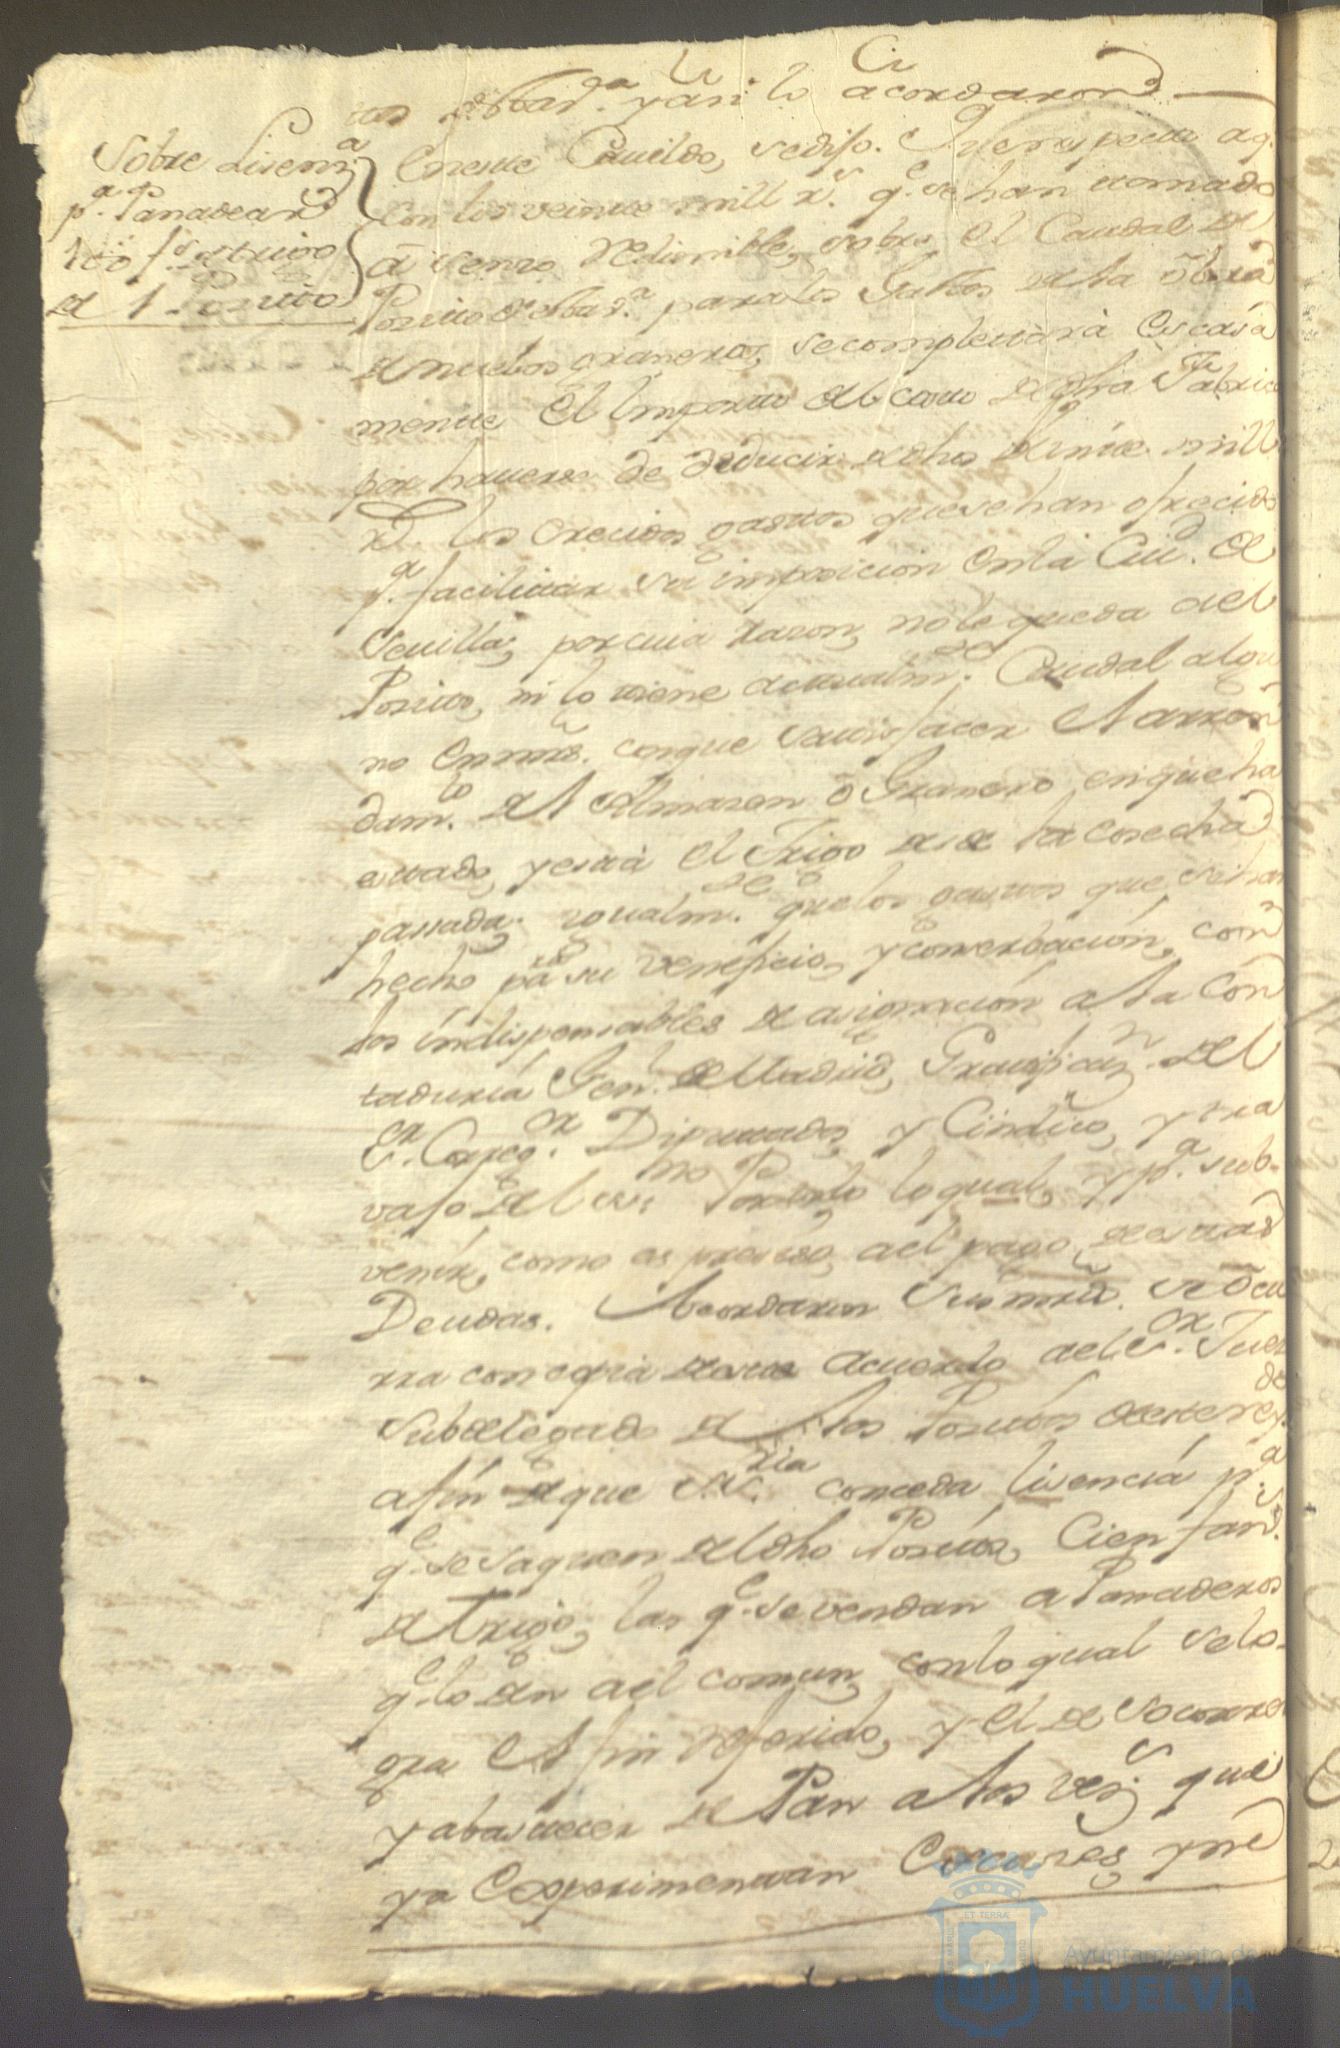 esta va.ª y así lo acordaron
Sobre Lisenz.ª
p.ª Panadear
100 f.s de trigo
del Posito
En este Cavildo, se dijo. Que respecto a q.e
con los veinte mill r.s q.e se han tomado
à senso redimible, sobre el Caudal del
Posito para los Gastos de la obra
de nuebos graneros, se completarà escasa
mente el Importe del costo de dha Fabrica
por haverse de deducir de dhos veinte mill
r.s los crecidos gastos que se han ofrecido
p.ª facilitar su imposicion en la Ciu.d de
Sevilla, por cuia razon, no le queda al
Posito, ni lo tiene actualm.te Caudal algu
no en mrs. con que satisfacer el arren
dam.to del Almazen ò Granero, en que ha
estado, y està el Trigo desde la cosecha
passada. igualm.te que los gastos que se han
hecho para su veneficio, y conserbación, con
los indispensables de asignación a la Con
taduría Gen.l de Madrid, Gratificaz.n del
S.r Correg.r Diputados, y Cindico, y tra
vajo del es.no Por todo lo qual, y p.ª sub-
venir, como es preciso, al pago de estas
Deudas. Acordaron sus mrds. se ocu
rra con copia de este acuerdo al S.r Juez
Subdelegado de los Positos de este rey.do
a fin de que S.S.ria conceda lisencia p.ª
q.e se saquen del dho Posito, Cien fan.s
de trigo, las q.e se vendan a Panaderos
q.e lo den al comun, con lo qual se lo-
gra el fin referido, y el de socorrer
y abastecer de Pan a los vez.s que
ya Experimentan Escases, y ne
Ayuntamiento de
HUELVA